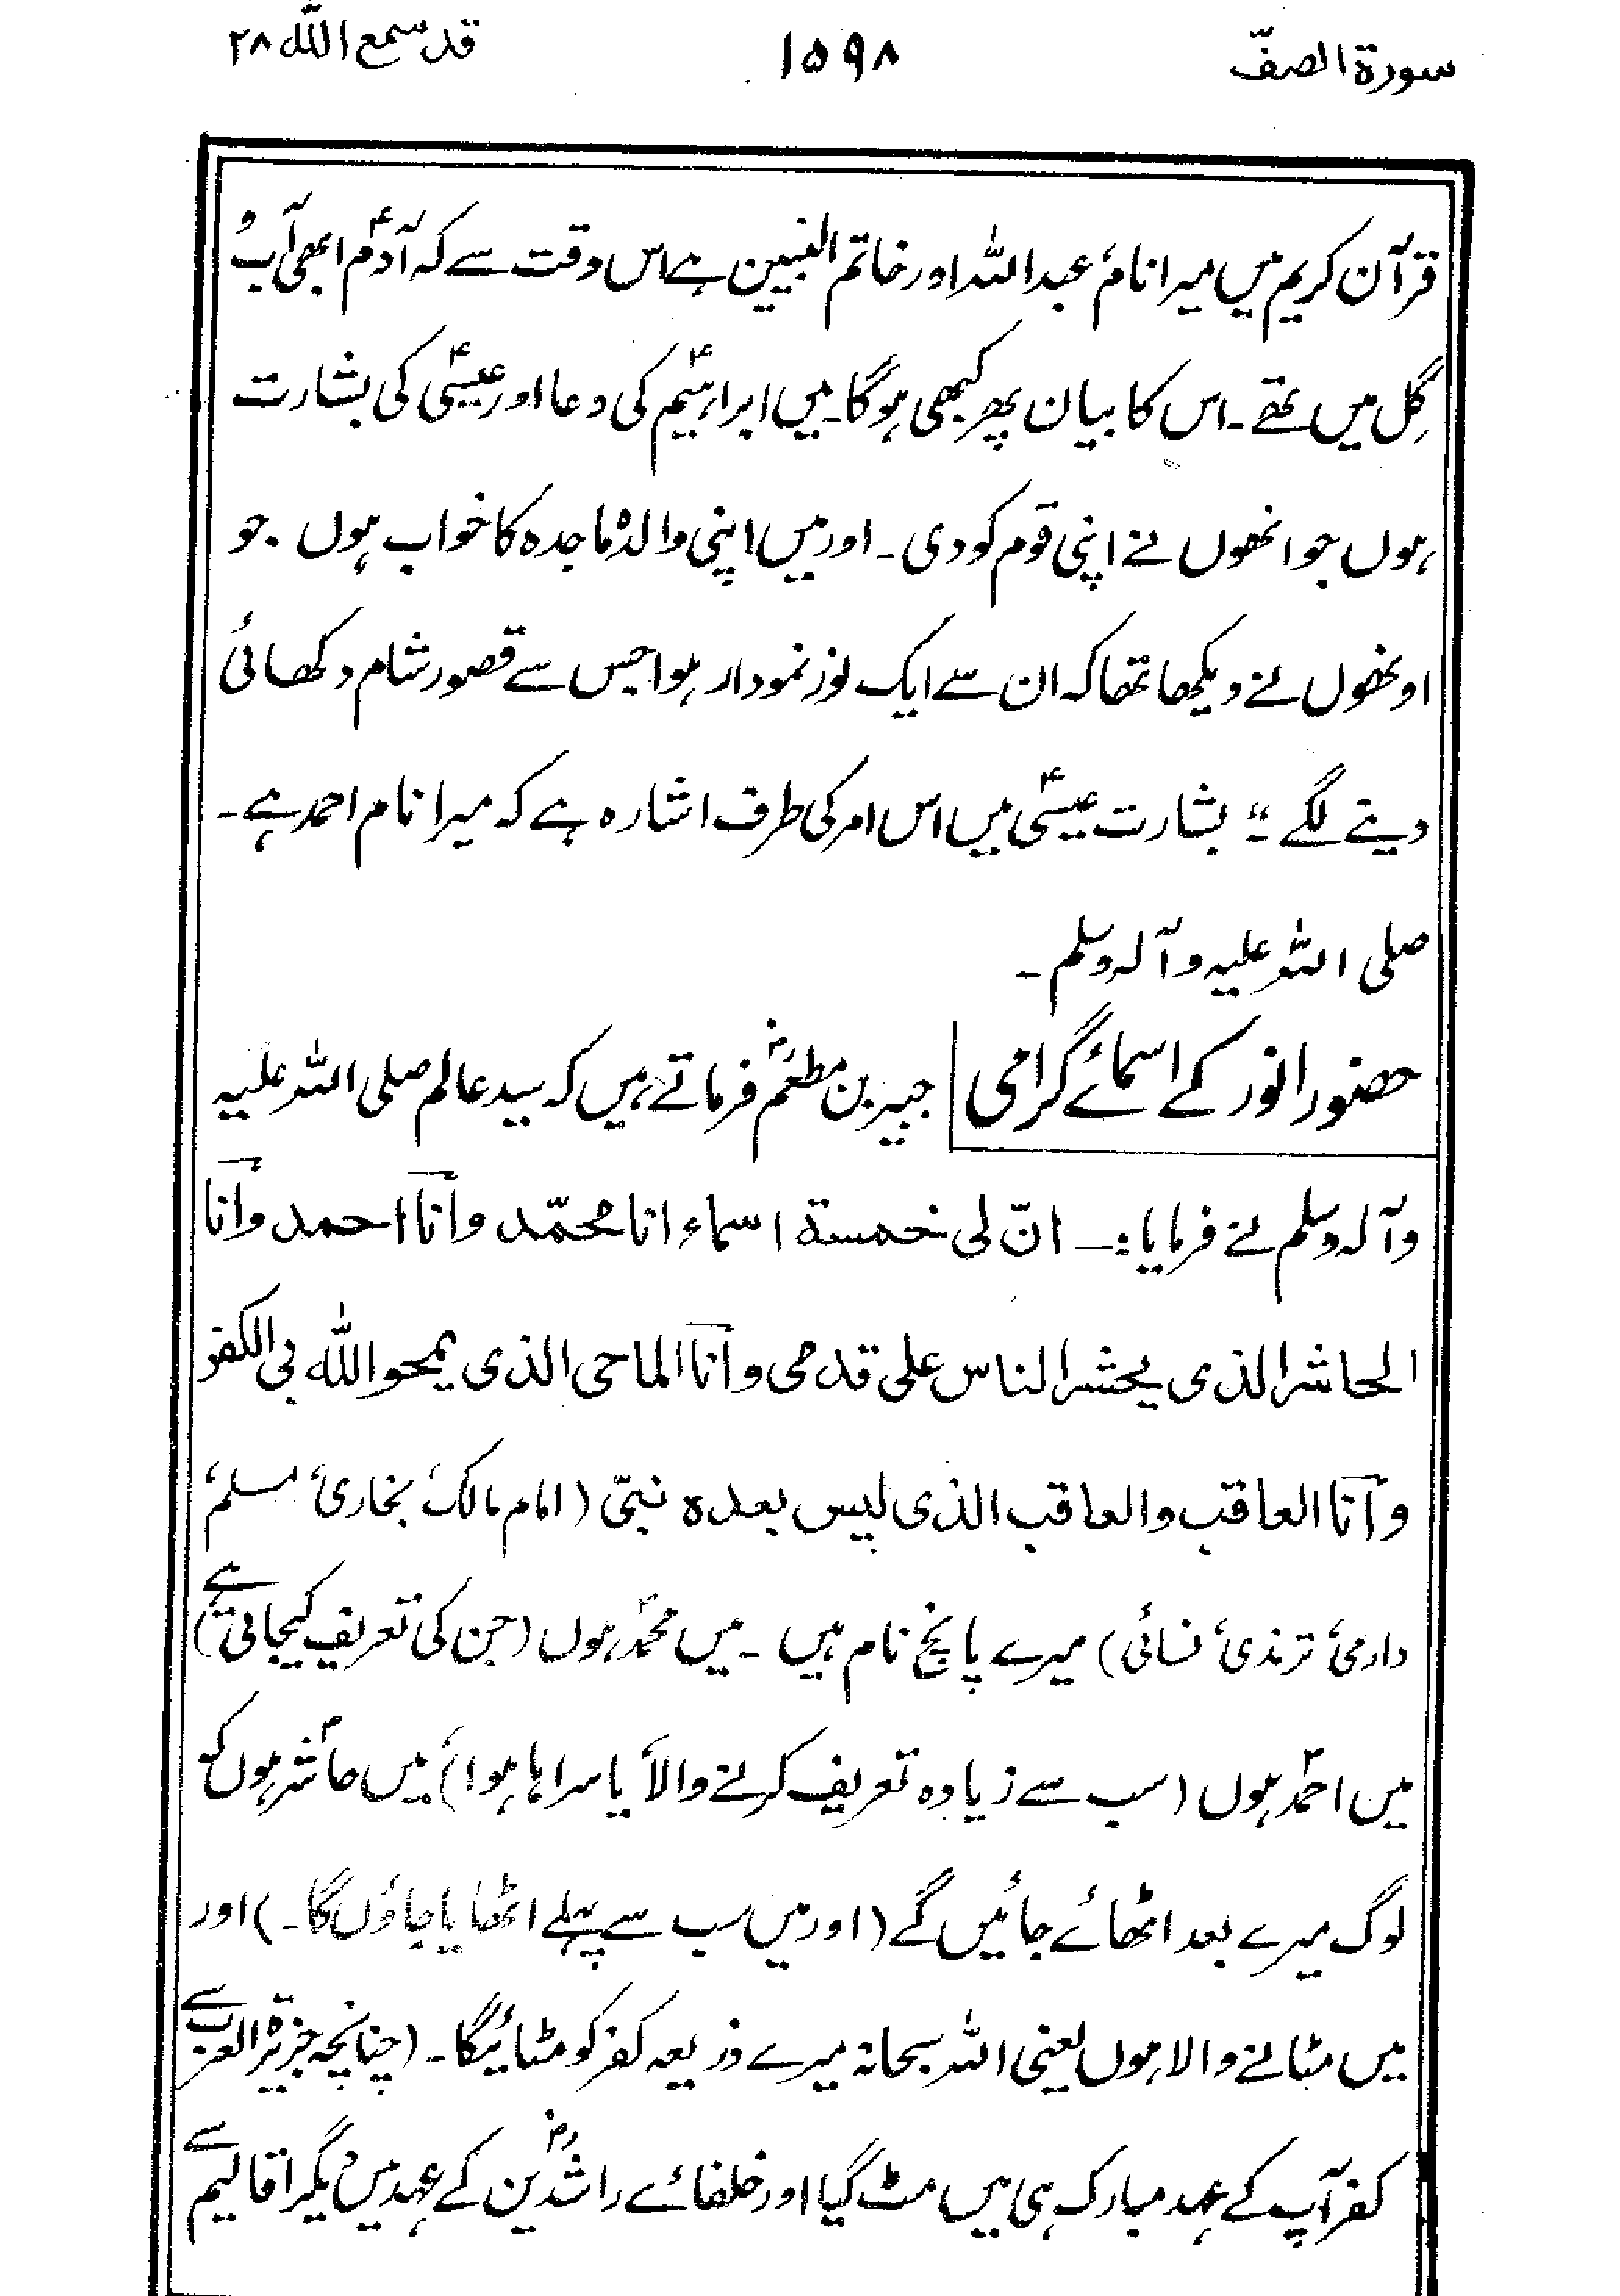 سورۃ الصفّ ۱۵۹۸ قد سمع اللّٰہ ۲۸
قرآن کریم میں میرا نام عبداللہ اور خاتم النبیین ہے اس وقت سے کہ آدمؑ ابھی آب و
گِل میں تھے۔ اس کا بیان پھر کبھی ہوگا۔ میں ابراہیمؑ کی دعا اور عیسیٰؑ کی بشارت
ہوں جو انھوں نے اپنی قوم کو دی۔ اور میں اپنی والدۂ ماجدہ کا خواب ہوں۔ جو
اونھوں نے دیکھا تھا کہ ان سے ایک نور نمودار ہوا جس سے قصور شام دکھائی
دینے لگے" بشارت عیسیٰؑ میں اس امر کی طرف اشارہ ہے کہ میرا نام احمد ہے۔
صلی اللہ علیہ وآلہ وسلم۔
حضور انور کے اسمائے گرامی جبیر بن مطعمؓ فرماتے ہیں کہ سید عالم صلی اللہ علیہ
وآلہ وسلم نے فرمایا:۔ انّ لی خمسة اسماء انا محمّد وأنا احمد وأنا
الحاشر الذی یحشر الناس علی قدمی وأنا الماحی الذی یمحو اللّٰہ بی الکفر
وأنا العاقب والعاقب الذی لیس بعدہ نبیّ (امام مالک، بخاری، مسلم،
دارمی، ترمذی، نسائی) میرے پانچ نام ہیں۔ میں محمدؐ ہوں (جن کی تعریف کیجاتی ہے)
میں احمدؐ ہوں (سب سے زیادہ تعریف کرنے والا، یا سراہا ہوا) میں حاشرؐ ہوں کہ
لوگ میرے بعد اٹھائے جائیں گے (اور میں سب سے پہلے اٹھایا جاؤں گا۔) اور
میں مٹانے والا ہوں یعنی اللہ سبحانہ میرے ذریعہ کفر کو مٹائیگا۔ (چنانچہ جزیرۃ العرب سے
کفر آپ کے عہد مبارک ہی میں مٹ گیا اور خلفائے راشدینؓ کے عہد میں دیگر اقالیم سے